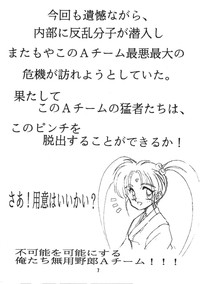 今回も遺憾ながら、
内部に反乱分子が潜入し
またもやこのAチーム最悪最大の
危機が訪れようとしていた。
果たして
このAチームの猛者たちは、
このピンチを
脱出することができるか！
さあ！用意はいいかい？
不可能を可能にする
俺たち無用野郎Aチーム！！！
1